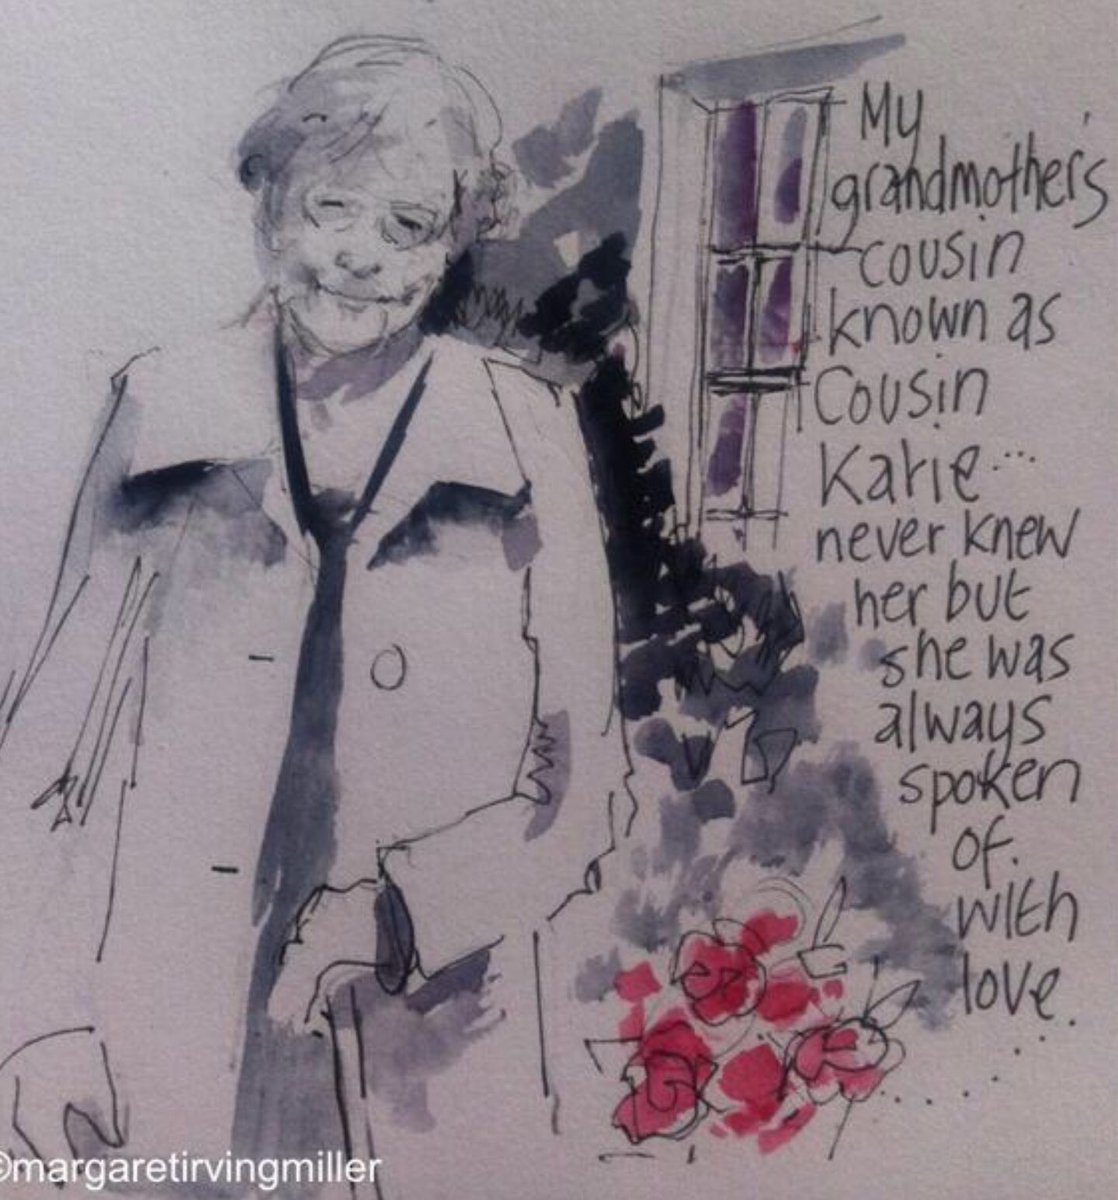 My
grandmother's
cousin
known as
Cousin
Katie...
never knew
her but
she was
always
spoken
of.
with
love.
©margaretirvingmiller